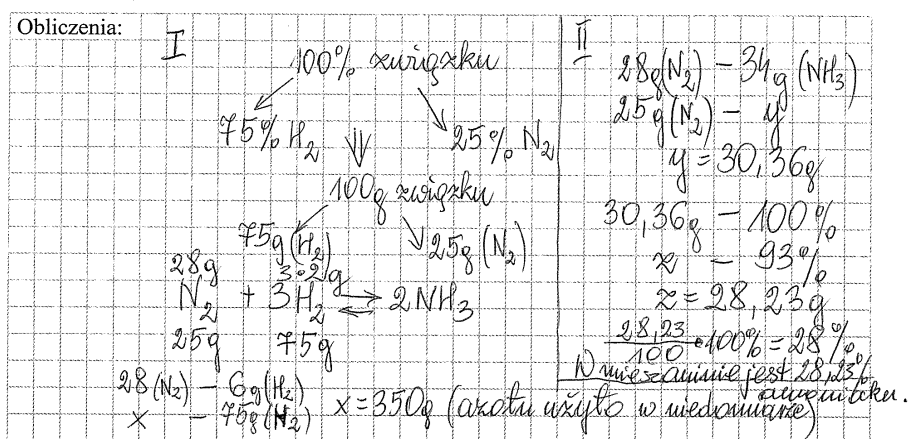 Obliczenia:
I
100% związku
75% H2
25% N2
100g związku
75g (H2)
25g (N2)
28g 3·2g
N2 + 3H2 ⇄ 2NH3
25g 75g
28 (N2) – 6g (H2)
x – 75g (H2) x = 350g (azotu użyto w niedomiarze)
II
28g (N2) – 34g (NH3)
25g (N2) – y
y = 30,36g
30,36g – 100%
z – 93%
z = 28,23g
28,23/100 · 100% = 28%
W mieszaninie jest 28,23%
amoniaku.